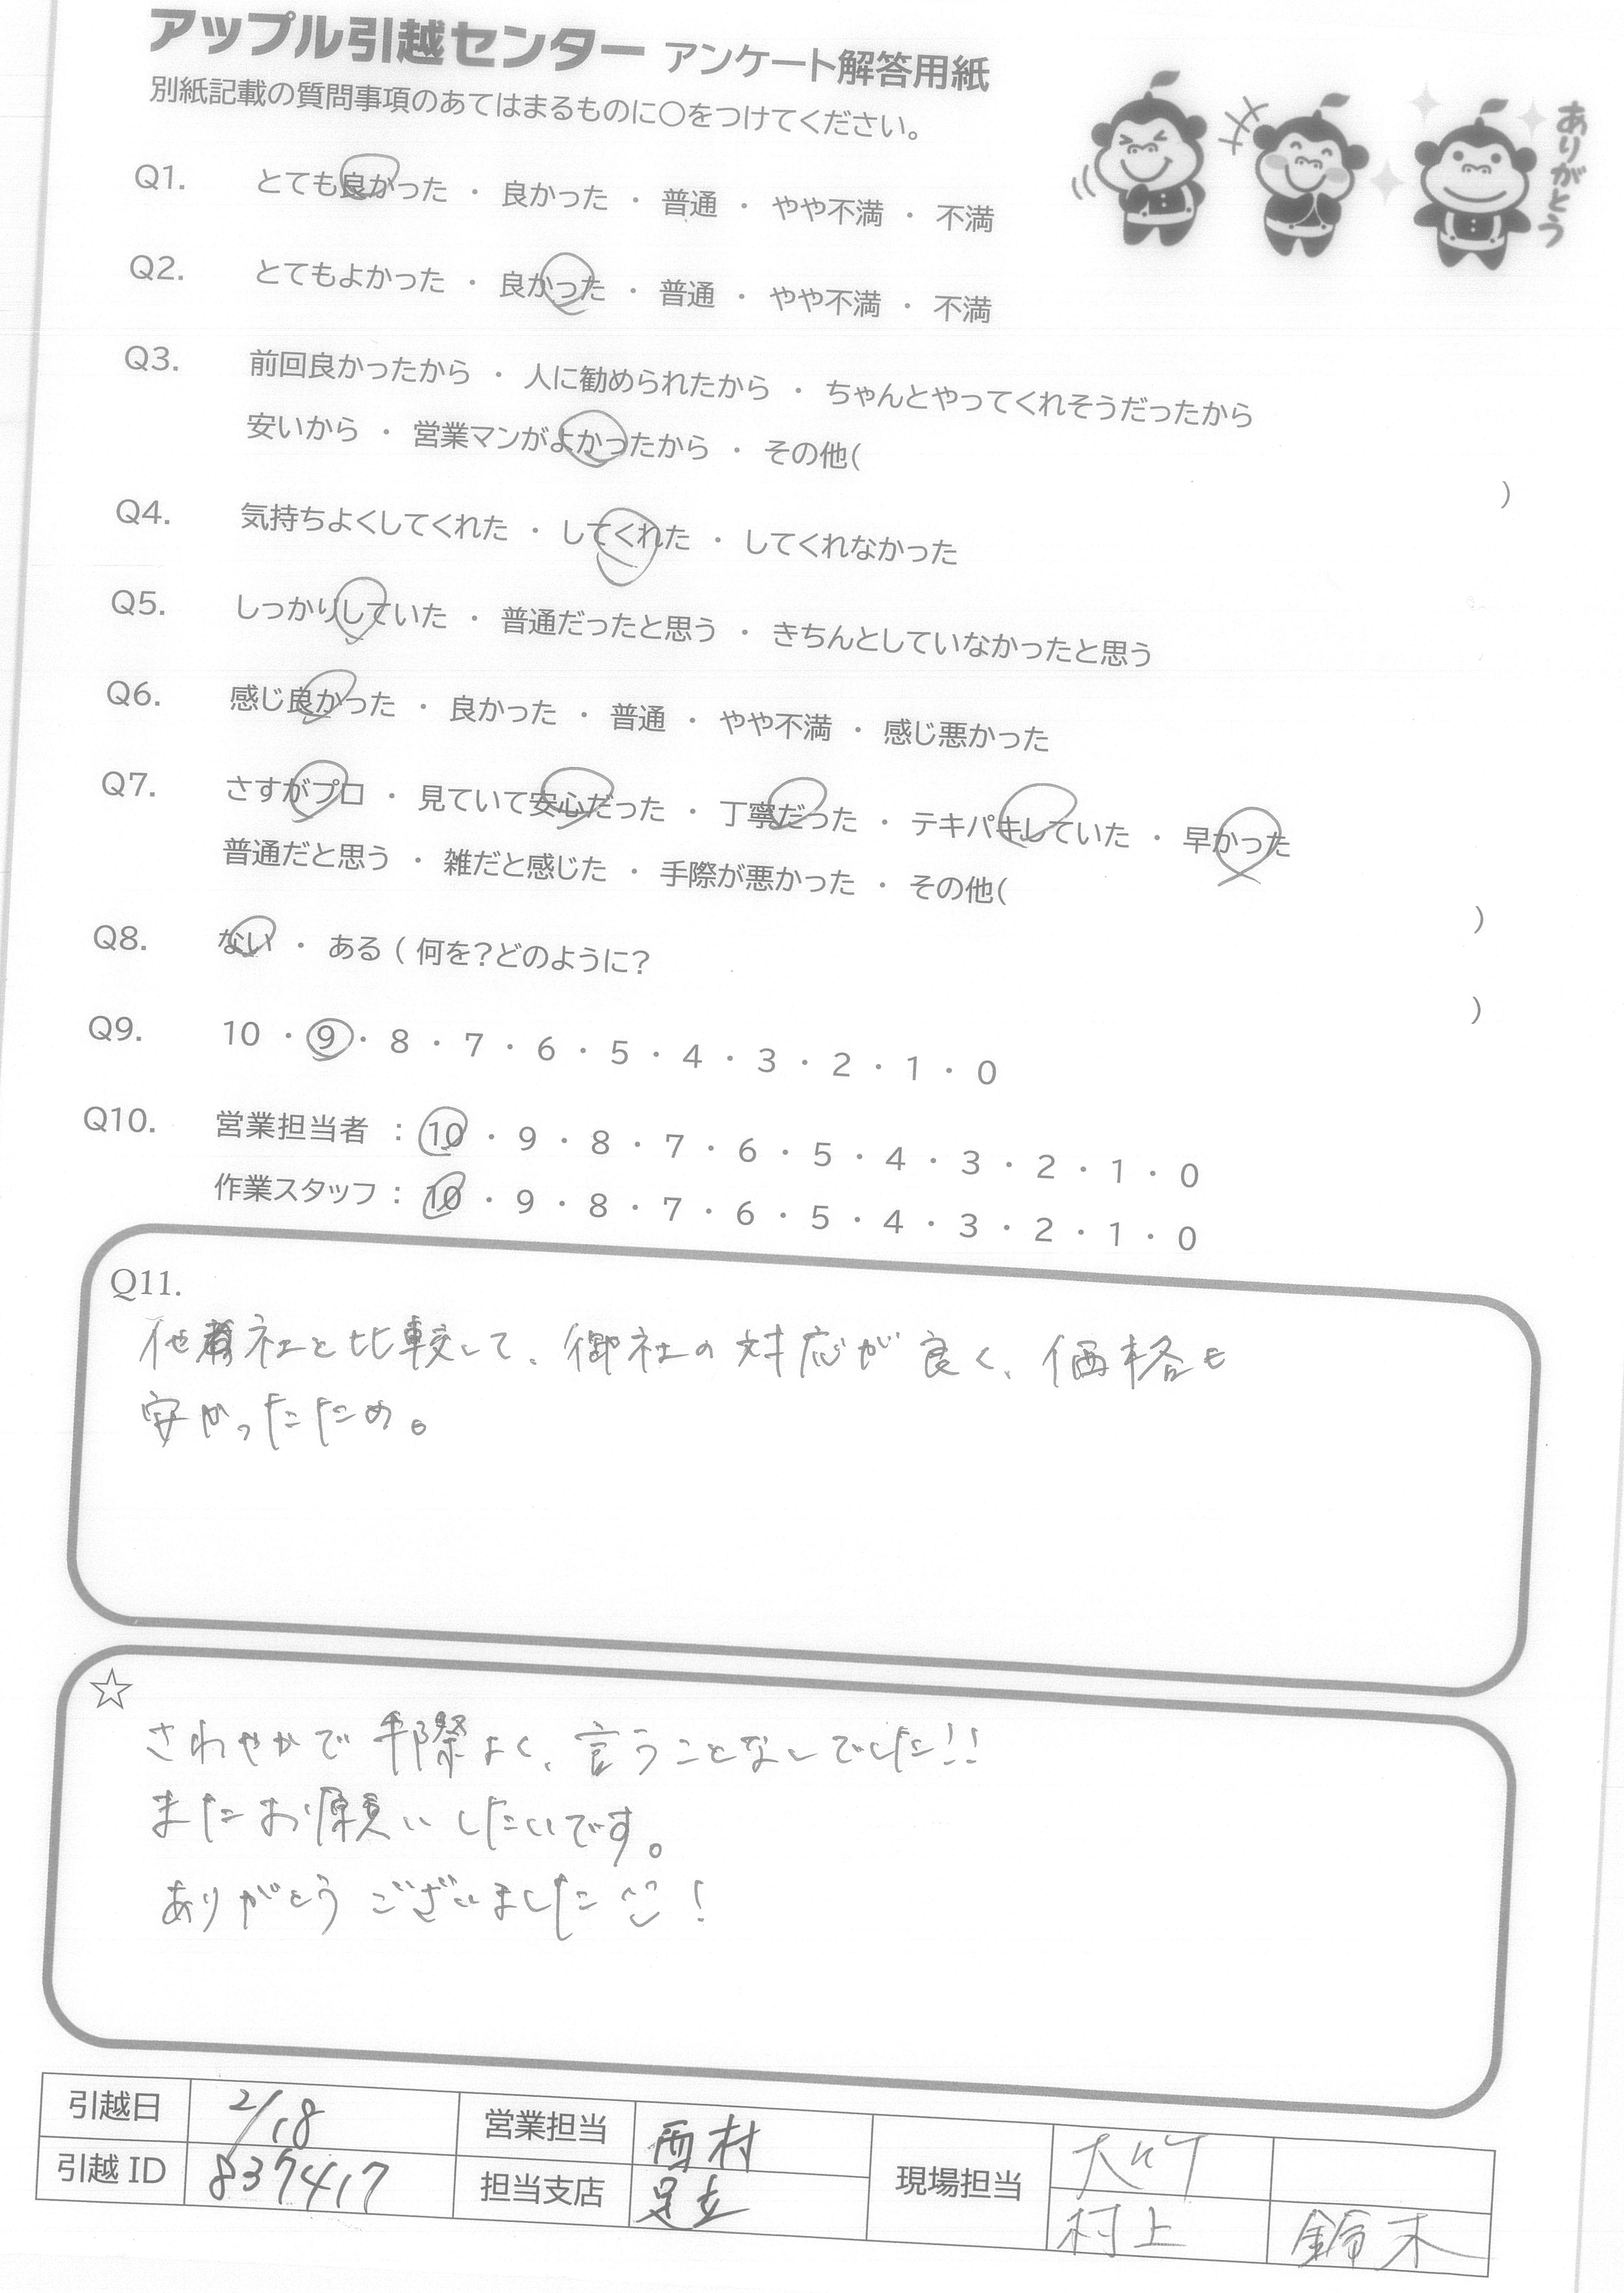 アップル引越センター アンケート解答用紙
別紙記載の質問事項のあてはまるものに〇をつけてください。
ありがとう
Q1. とても良かった ・ 良かった ・ 普通 ・ やや不満 ・ 不満
Q2. とてもよかった ・ 良かった ・ 普通 ・ やや不満 ・ 不満
Q3. 前回良かったから ・ 人に勧められたから ・ ちゃんとやってくれそうだったから
安いから ・ 営業マンがよかったから ・ その他( )
Q4. 気持ちよくしてくれた ・ してくれた ・ してくれなかった
Q5. しっかりしていた ・ 普通だったと思う ・ きちんとしていなかったと思う
Q6. 感じ良かった ・ 良かった ・ 普通 ・ やや不満 ・ 感じ悪かった
Q7. さすがプロ ・ 見ていて安心だった ・ 丁寧だった ・ テキパキしていた ・ 早かった
普通だと思う ・ 雑だと感じた ・ 手際が悪かった ・ その他( )
Q8. ない ・ ある ( 何を?どのように? )
Q9. 10 ・ 9 ・ 8 ・ 7 ・ 6 ・ 5 ・ 4 ・ 3 ・ 2 ・ 1 ・ 0
Q10. 営業担当者 : 10 ・ 9 ・ 8 ・ 7 ・ 6 ・ 5 ・ 4 ・ 3 ・ 2 ・ 1 ・ 0
作業スタッフ : 10 ・ 9 ・ 8 ・ 7 ・ 6 ・ 5 ・ 4 ・ 3 ・ 2 ・ 1 ・ 0
Q11.
他社と比較して、御社の対応が良く、価格も
安かったため。
☆
さわやかで手際よく、言うことなしでした!!
またお願いしたいです。
ありがとうございました!
引越日 2/18 営業担当 西村
引越 ID 837417 担当支店 足立
現場担当 大竹
村上 鈴木